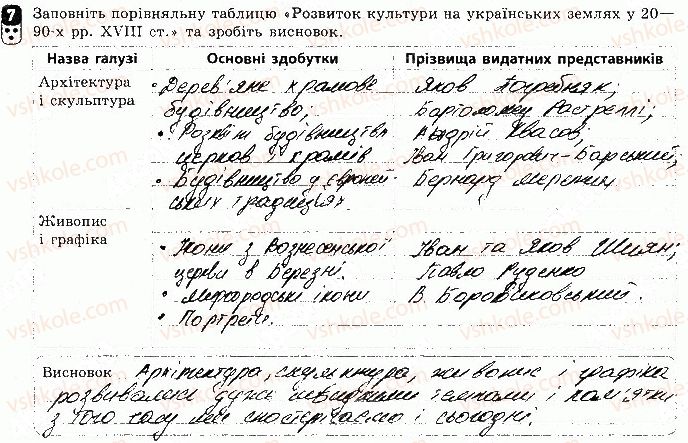 7 Заповніть порівняльну таблицю «Розвиток культури на українських землях у 20—
90-х рр. XVIII ст.» та зробіть висновок.
Назва галузі Основні здобутки Прізвища видатних представників
Архітектура • Дерев'яне храмове Яков Погребняк;
і скульптура будівництво; Бартоломео Растреллі;
• Розквіт будівництва Андрій Квасов;
церков і храмів Іван Григорович-Барський;
• Будівництво у європей- Бернард Меретин
ських традиціях.
Живопис
і графіка • Ікони з Вознесенської Іван та Яков Шиян;
церкви в Березні. Павло Руденко
• Миргородські ікони В. Боровиковський.
• Портрети.
Висновок Архітектура, скульптура, живопис і графіка
розвивалася дуже швидкими темпами і пам'ятки
з того часу ми спостерігаємо і сьогодні.